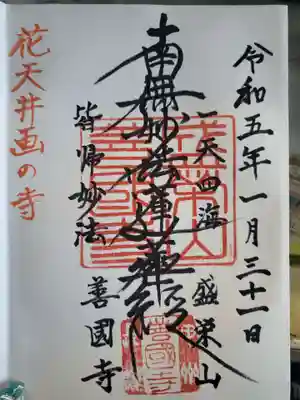 令和五年一月三十一日
盛栄山
一天四海
南無妙法蓮華経
皆帰妙法
善國寺
花天井画の寺